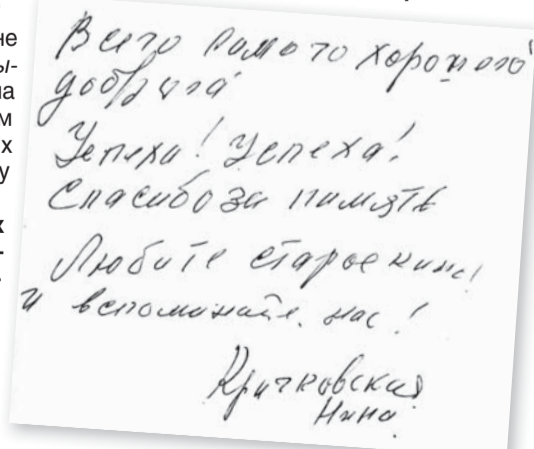 не
ы-
на
м
х
у
х
-
Всего самого хорошего
доброго
Успеха! Успеха!
Спасибо за память
Любите старое кино!
и вспоминайте нас!
Кричковская
Нина.